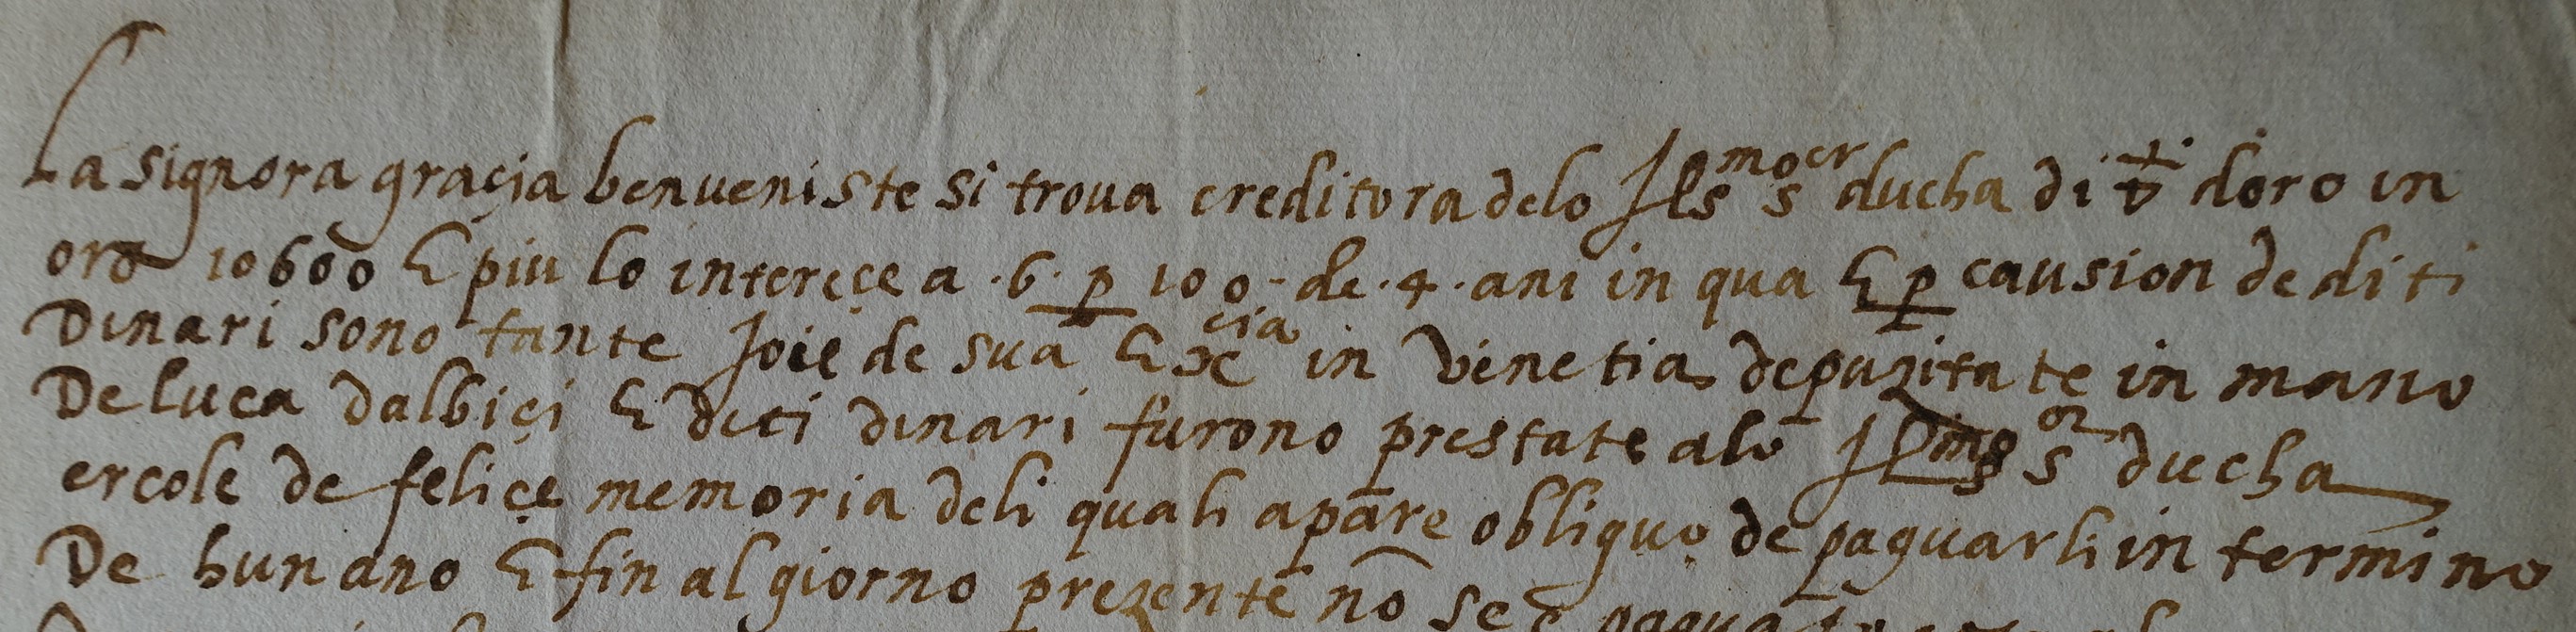 La signora graçia benueniste si troua creditora delo Jlsmo sor ducha di doro in
oro 10600 E piu lo intereçe a .6. p 100 - de .4. ani in qua E p causion de diti
Dinari sono tante Joie de sua Excia in Venetia depuzitate in mano
De luca dalbiçi E diti dinari furono prestate alo Jlmo sor ducha
ercole de feliçe memoria deli quali apare obliguo de paguarli in termino
De hun ano E fin al giorno prezente nō se